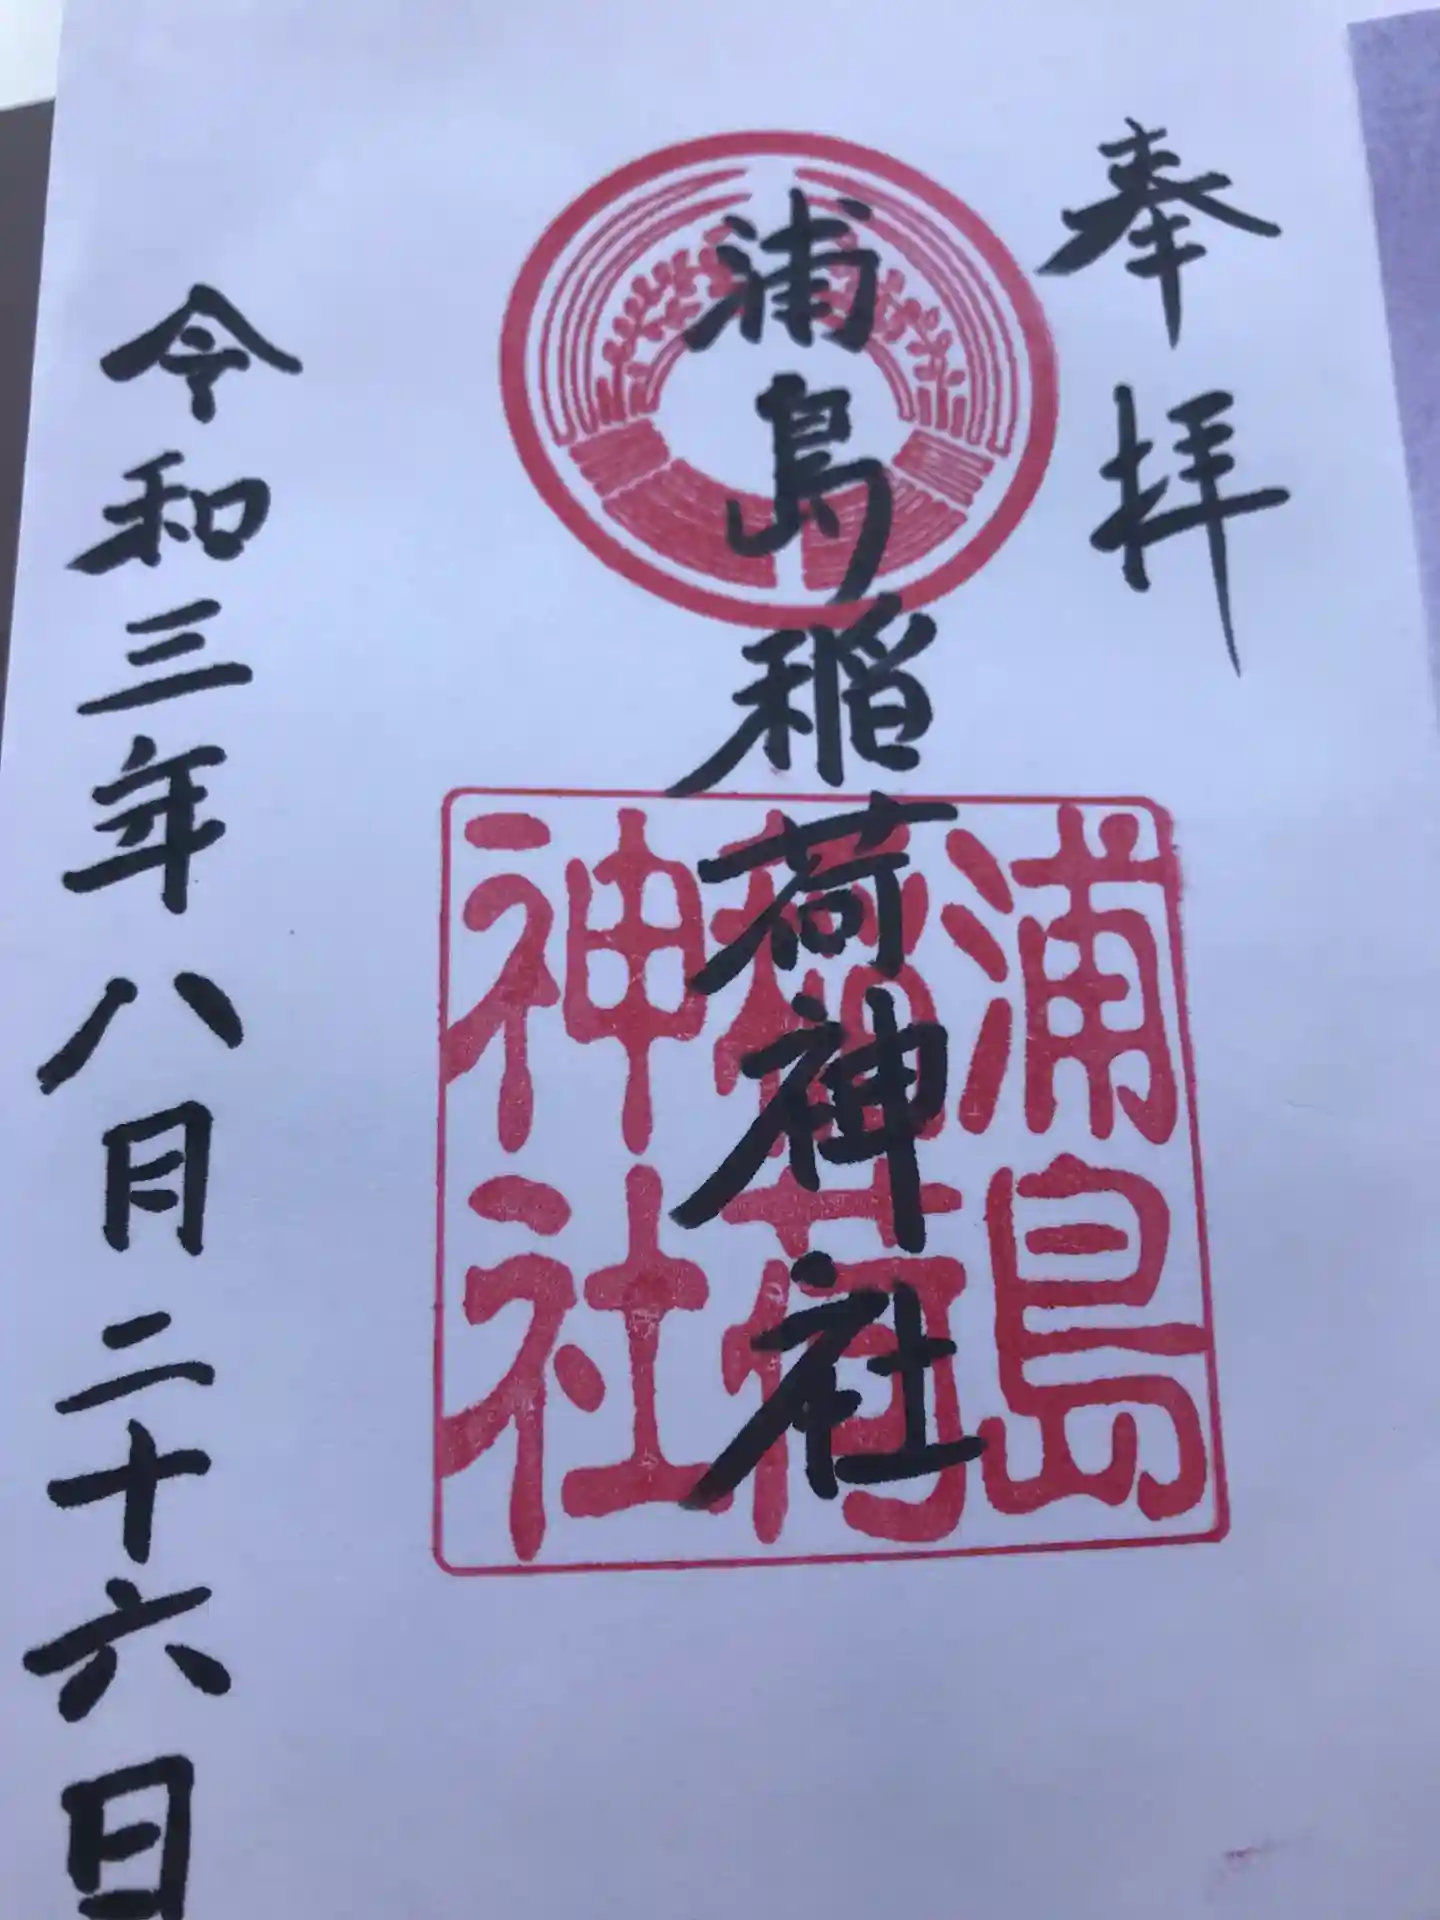 奉拝
浦島稲荷神社
浦島
稲荷
神社
令和三年八月二十六日